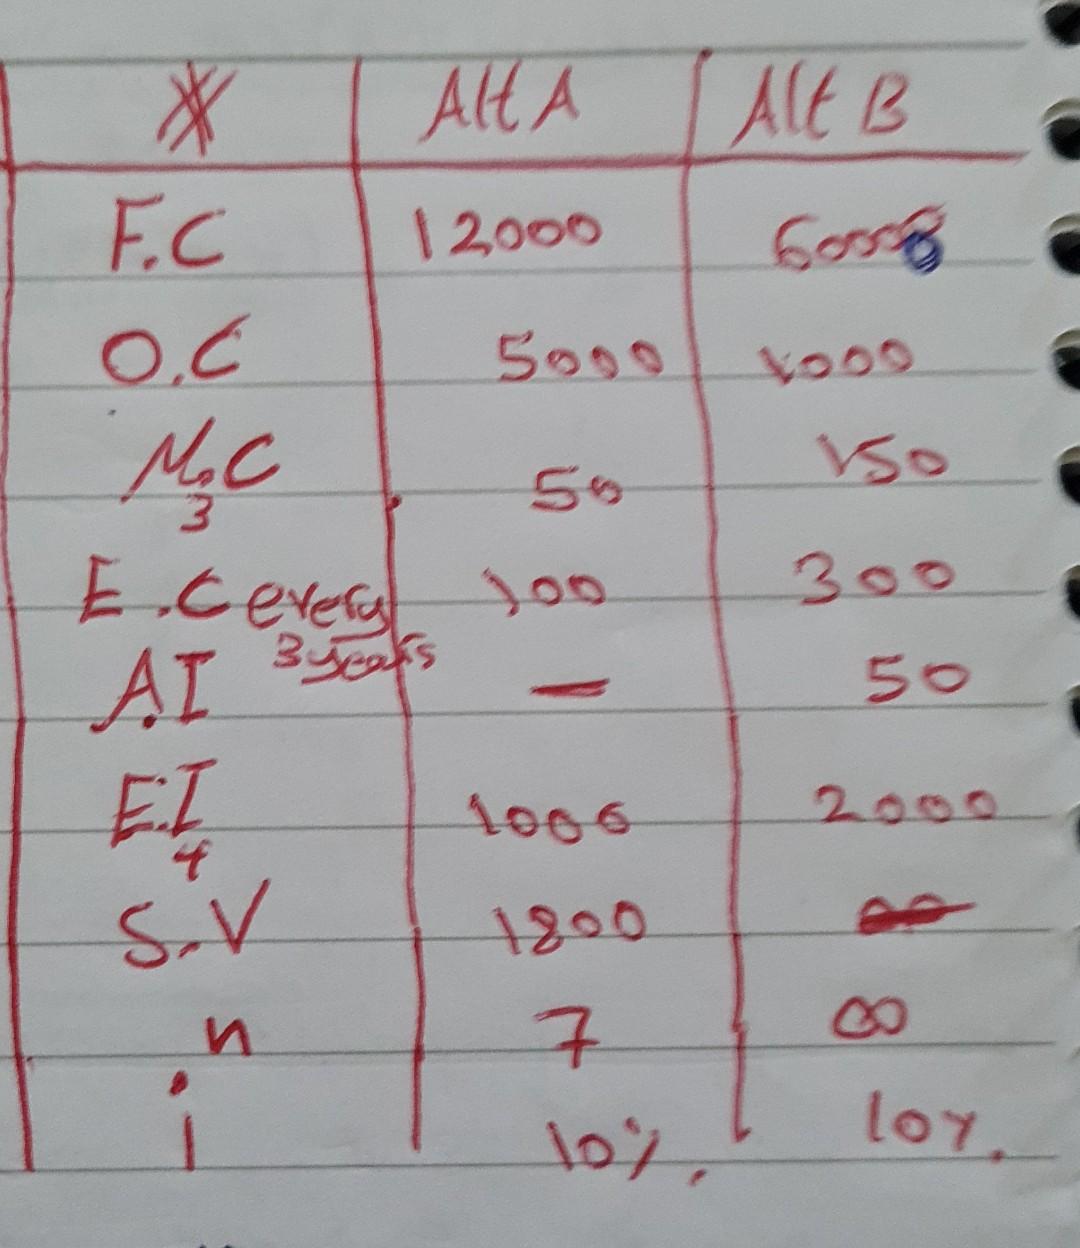 Alt A Alt B
F.C 12000
O.C 5000 1000
M.C 50 150
3
E.C every 100 300
3 years
A.I — 50
E.I 1000 2000
4
S.V 1800
n 7 ∞
i 10% 10%